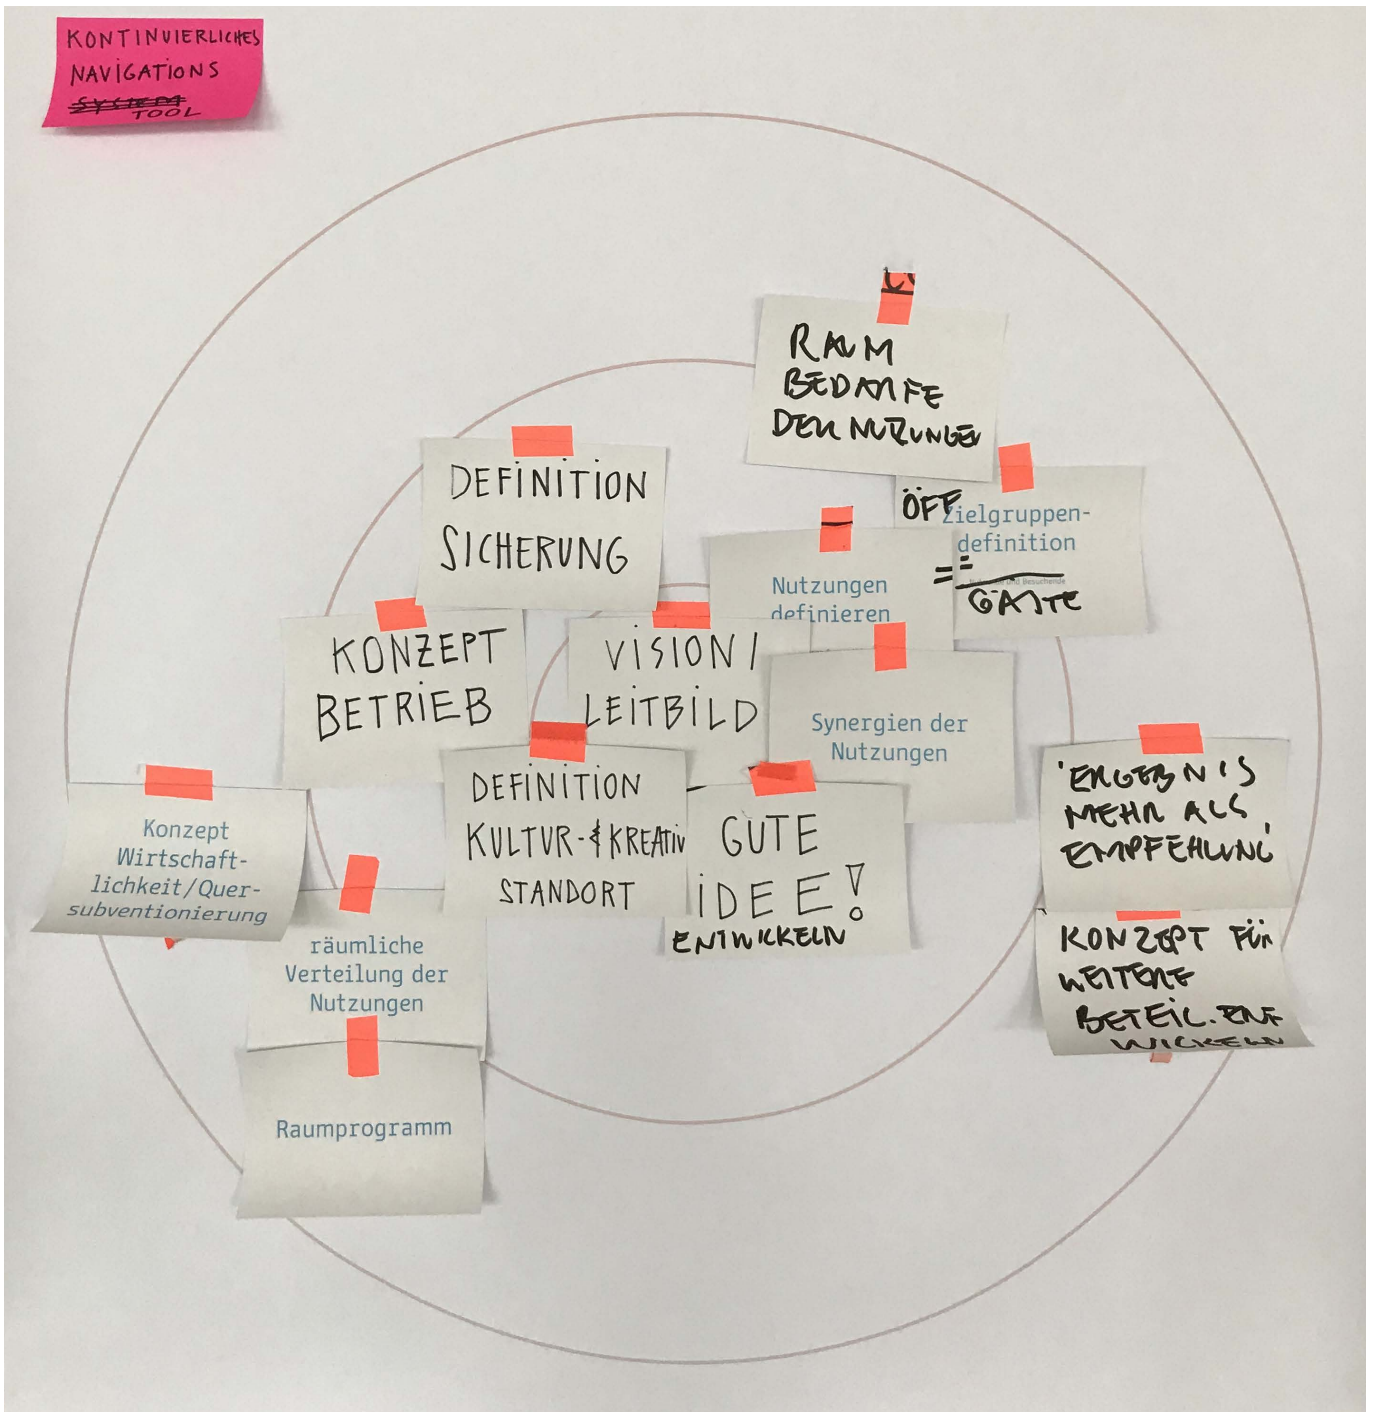 KONTINUIERLICHES
NAVIGATIONS
SYSTEM
TOOL
RAUM
BEDARFE
DER NUTZUNGEN
DEFINITION
SICHERUNG
ÖFF
Zielgruppen-
definition
und Besuchende
GÄSTE
Nutzungen
definieren
KONZEPT
BETRIEB
VISION/
LEITBILD
Synergien der
Nutzungen
DEFINITION
KULTUR-&KREATIV
STANDORT
GUTE
IDEE!
ENTWICKELN
'ERGEBNIS
MEHR ALS
EMPFEHLUNG'
KONZEPT FÜR
WEITERE
BETEIL. ENT
WICKELN
Konzept
Wirtschaft-
lichkeit/Quer-
subventionierung
räumliche
Verteilung der
Nutzungen
Raumprogramm